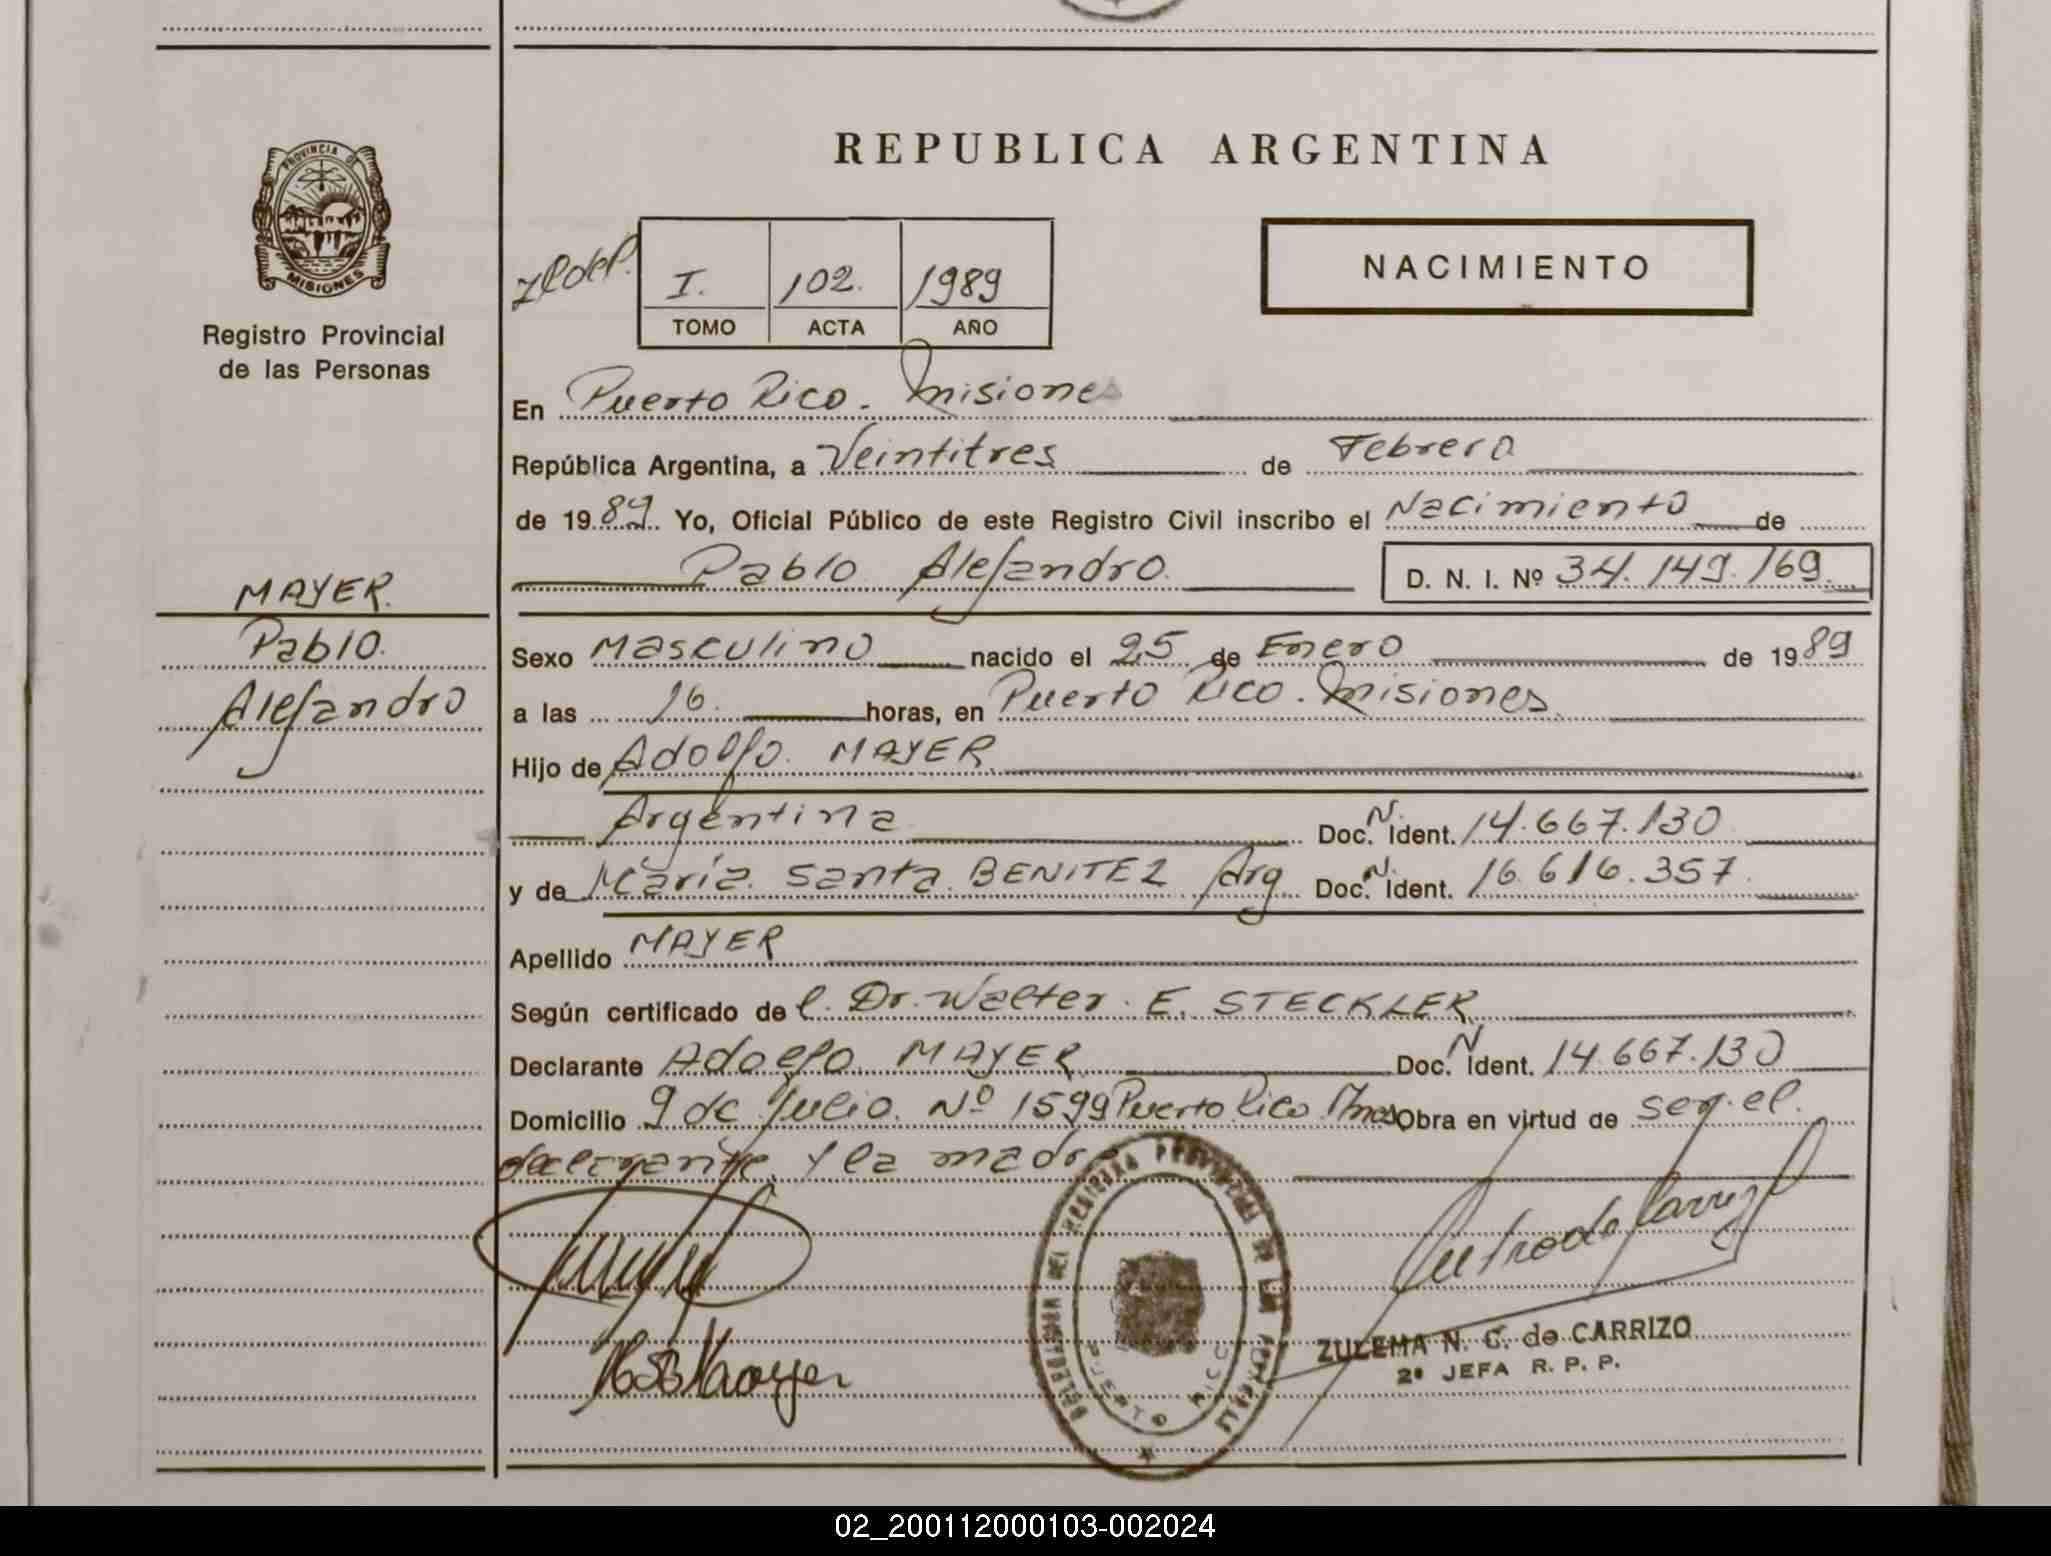 PROVINCIA DE
MISIONES
Registro Provincial
de las Personas
MAYER.
Pablo.
Alejandro
REPUBLICA ARGENTINA
I. 102. 1989
TOMO ACTA AÑO
NACIMIENTO
En Puerto Rico. Misiones
República Argentina, a Veintitres de Febrero
de 1989 Yo, Oficial Público de este Registro Civil inscribo el Nacimiento de
Pablo Alejandro. D. N. I. Nº 34.149.169.
Sexo Masculino nacido el 25 de Enero de 1989
a las 16. horas, en Puerto Rico. Misiones.
Hijo de Adolfo. MAYER.
Argentina Doc. N. Ident. 14.667.130
y de María. Santa. BENITEZ Arg Doc. N. Ident. 16.616.357.
Apellido MAYER
Según certificado de l. Dr. Walter. E. STECKLER.
Declarante Adolfo. MAYER Doc. N Ident. 14.667.130
Domicilio 9 de Julio. Nº 1599 Puerto Rico. Mnes Obra en virtud de ser. el.
declarante. y la madre
DELEGACION DEL REGISTRO PROVINCIAL DE LAS PERSONAS
PUERTO RICO
ZULEMA N. C. de CARRIZO
2ª JEFA R. P. P.
02_200112000103-002024